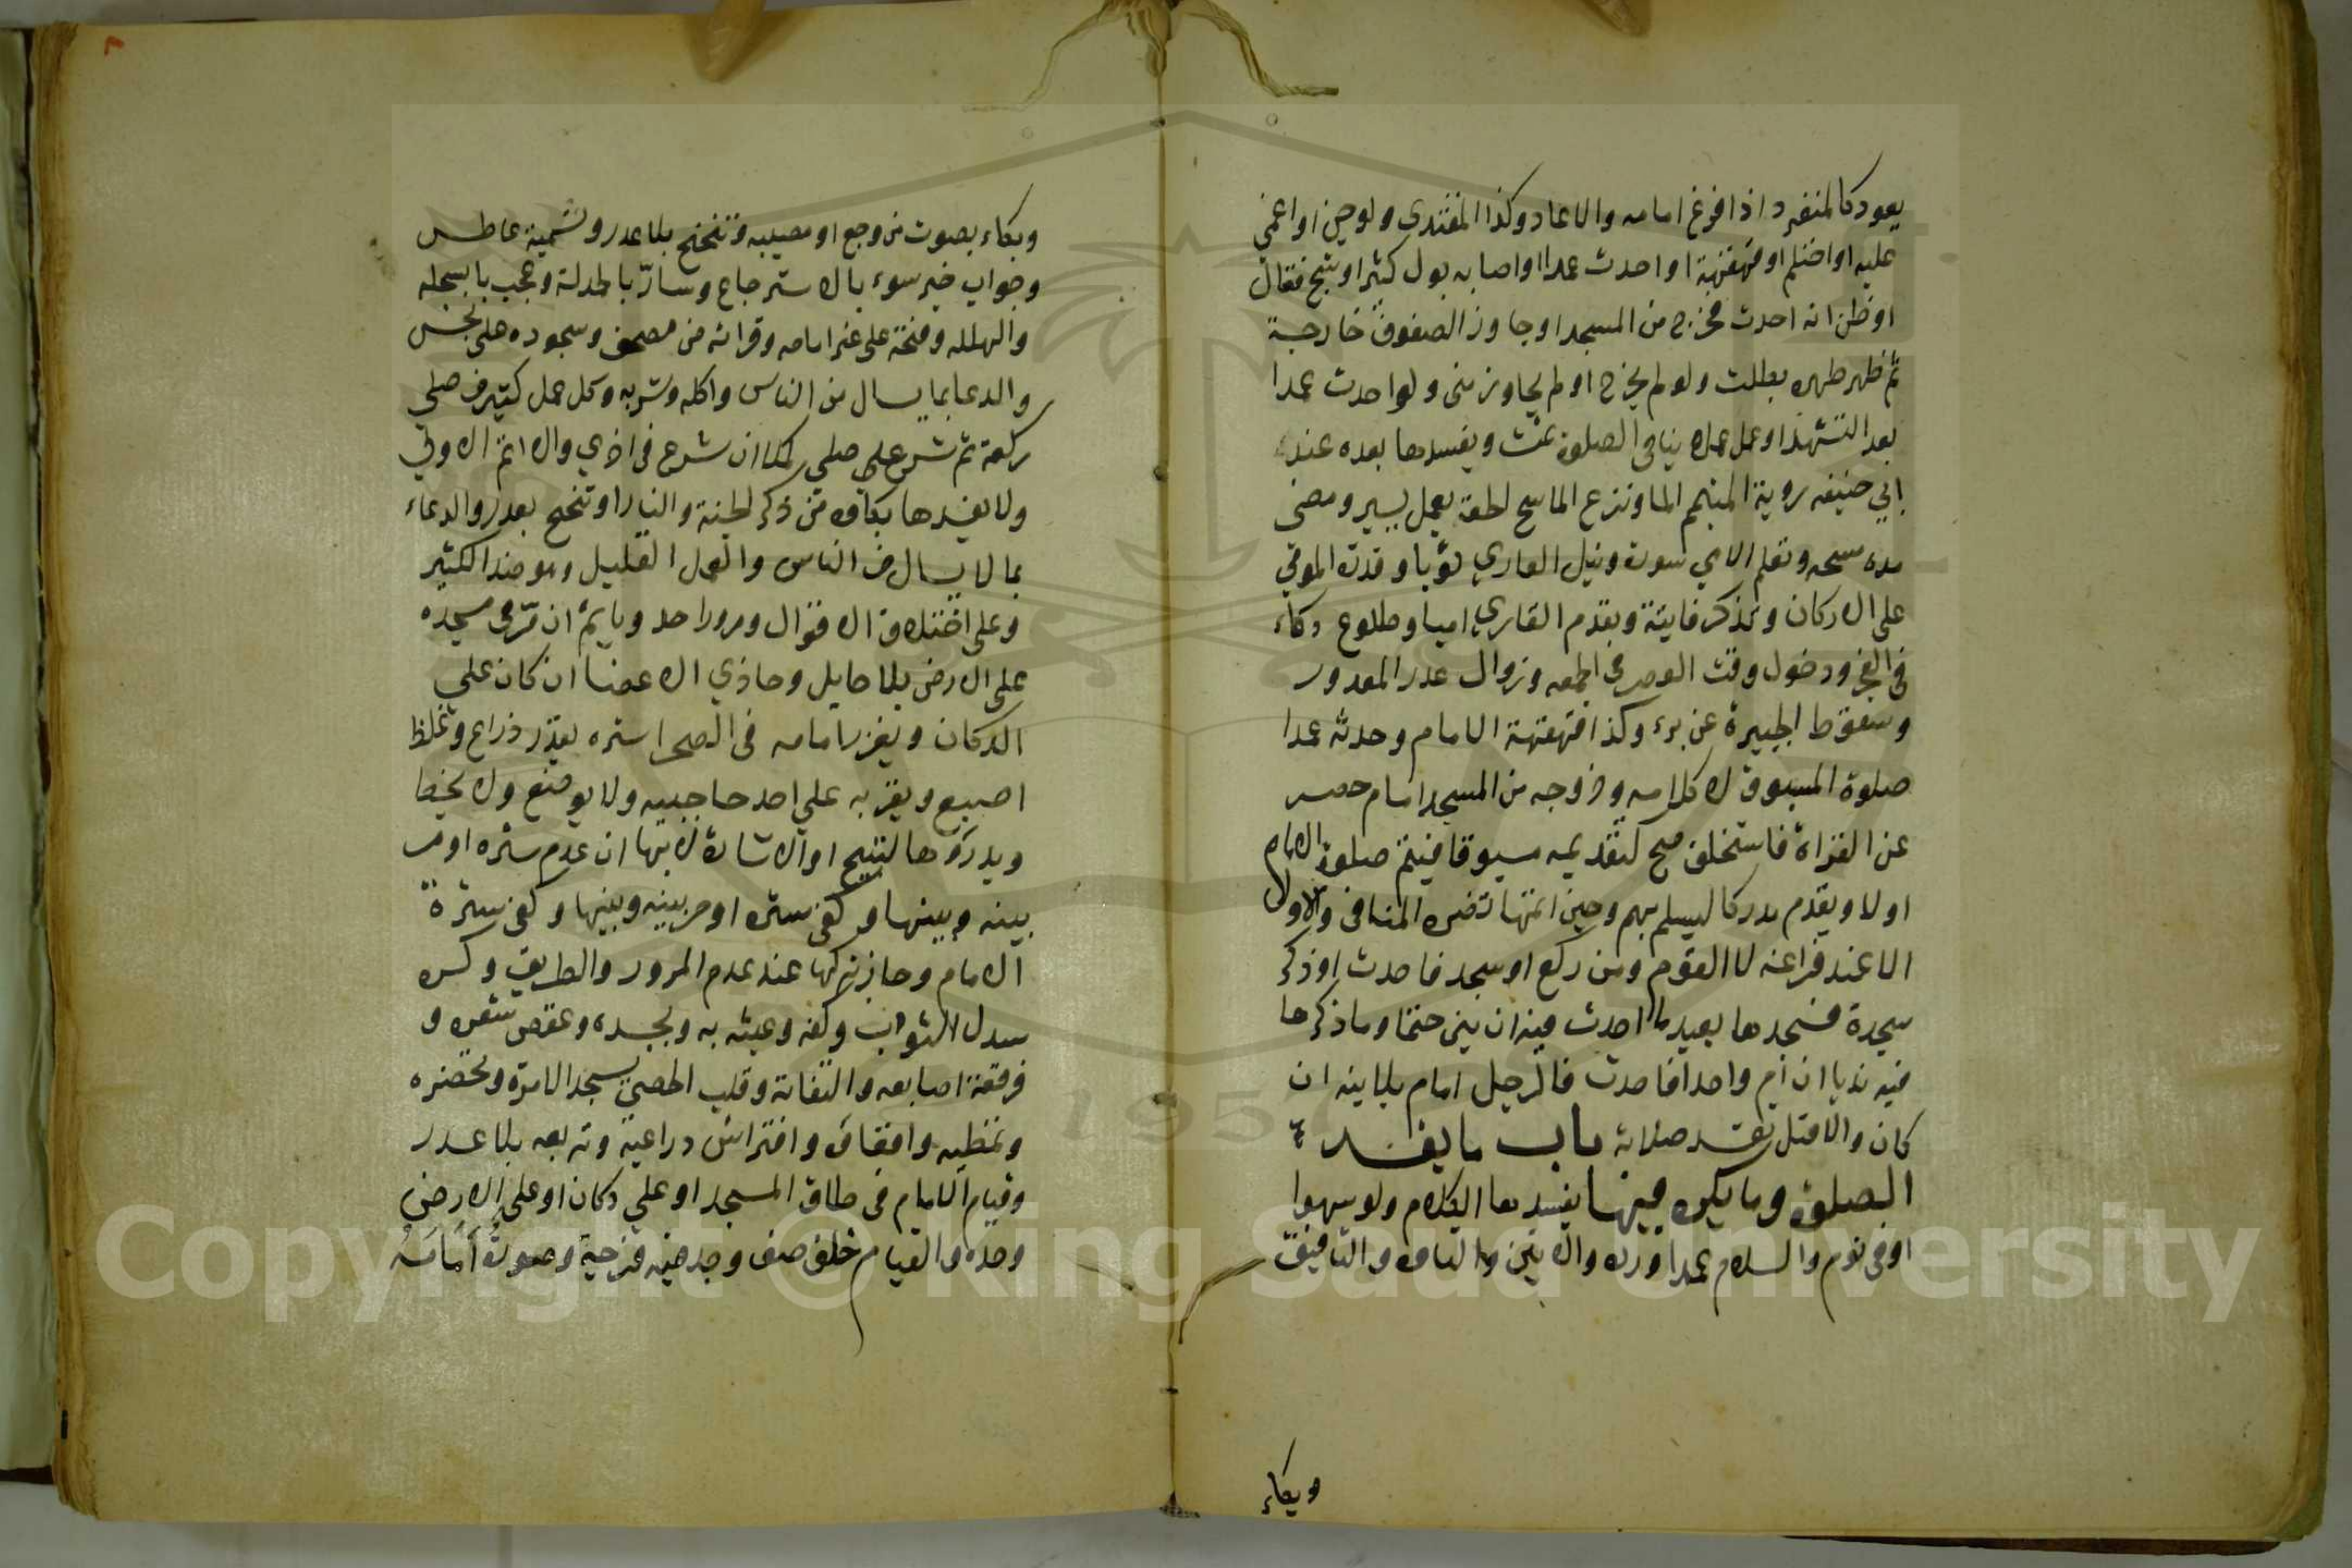 يعود كالمنفرد اذا فرغ امامه والا عاد وكذا المقتدي ولو جن او اغمي
عليه او احتلم او قهقهة او احدث عمدا او اصابه بول كثير او شج فقال
او ظن انه احدث فخرج من المسجد او جاوز الصفوف خارجة
ثم ظهر طهره بطلت ولو لم يخرج او لم يجاوز بنى ولو احدث عمدا
بعد التشهد او عمل عملا ينافي الصلوة تمت ويفسدها بعده عند
ابي حنيفه روية المتيمم الما ونزع الماسح لخفه بعمل يسير ومضى
مدة مسحه وتعلم الامي سورة ونيل العاري ثوبا وقدرة المومي
على الاركان وتذكر فايتة وتقدم القاري اميا وطلوع ذكاء
في الفجر ودخول وقت العصر في الجمعه وزوال عذر المعذور
وسقوط الجبيرة عن برء وكذا قهقهة الامام وحدثه عمدا
صلوة المسبوق لا كلامه وخروجه من المسجد امام حصر
عن القراة فاستخلف صح كتقديمه مسبوقا فيتم صلوة الامام
اولا ويقدم مدركا ليسلم بهم وحين اتمها تضره المنافي والاول
الا عند فراغه لا القوم ومن ركع او سجد فاحدث او ذكر
سجدة فسجدها يعيد ما احدث فيه ان بنى حتما وما ذكرها
فيه ندبا ان ام واحدا فاحدث فالرجل امام بلا نية ان
كان والا قيل تفسد صلاته باب ما يفسد
الصلوة وما يكره فيها يفسدها الكلام ولو سهوا
او في نوم والسلام عمدا ورده والانين والتاوه والتافيف
وبكاء
وبكاء بصوت من وجع او مصيبه وتنحنح بلا عذر وتشميت عاطس
وجواب خبر سوء بالاسترجاع وسار بالحمدلة وعجب بالسبحله
والهلله وفتحه على غير امامه وقراته من مصحف وسجوده على نجس
والدعا بما يسال من الناس واكله وشربه وكل عمل كثير من صلي
ركعة ثم شرع صلي كملا ان شرع في اخري والا اتم الاولي
ولا يفسدها بكاوه من ذكر الجنة والنار او تنحنح بعذر والدعاء
بما لا يسال من الناس والعمل القليل وهو ضد الكثير
وعلى اختلاف الاقوال ومرور احد وياثم ان مر في مسجده
على الارض بلا حايل وحاذي الاعضا ان كان علي
الدكان ويغرز امامه في الصحرا ستره بقدر ذراع وغلظ
اصبع ويقربه علي احد حاجبيه ولا يوضع ولا يخط
ويدروها لتسبيح او الاشارة لا بهما ان عدم ستره او مر
بينه وبينها وكفى ستره او مر بينه وبينها وكفى سترة
الامام وجاز تركها عند عدم المرور والطريق وكره
سدل الثواب وكفه وعبثه به وبجسده وعقص شعره و
فرقعة اصابعه والتفاته وقلب الحصي ليسجد الا مرة وتخصره
وتمطيه واقعاوه وافتراش ذراعيه وتربعه بلا عذر
وقيام الامام في طاق المسجد او علي دكان او على الارض
وحده والقيام خلف صف وجد فيه فرجة وصورة امامه
Copyright © King Saud University
195